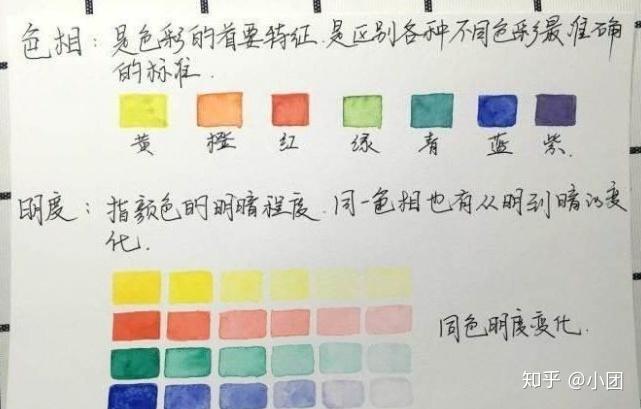 色相：是色彩的首要特征.是区别各种不同色彩最准确
的标准.
黄 橙 红 绿 青 蓝 紫.
明度：指颜色的明暗程度.同一色相也有从明到暗的变
化.
同色明度变化.
知乎 @小团